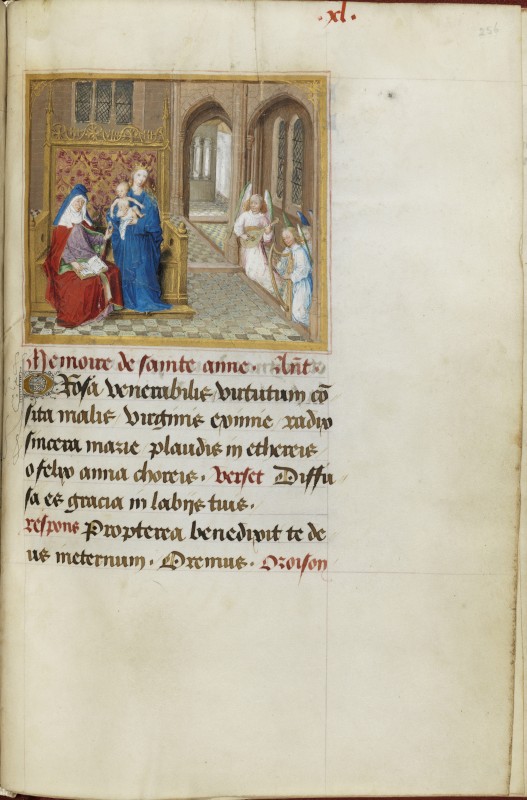 .xl.
256
Memoire de sainte anne. Ant̄.
O Rosa venerabilis virtutum cō
sita malis virginis eximie radix
sincera marie plaudis in ethereis
o felix anna choreis. Verset Diffu
sa es gracia in labijs tuis.
respons Propterea benedixit te de
us ineternum. Oremus. Oroison